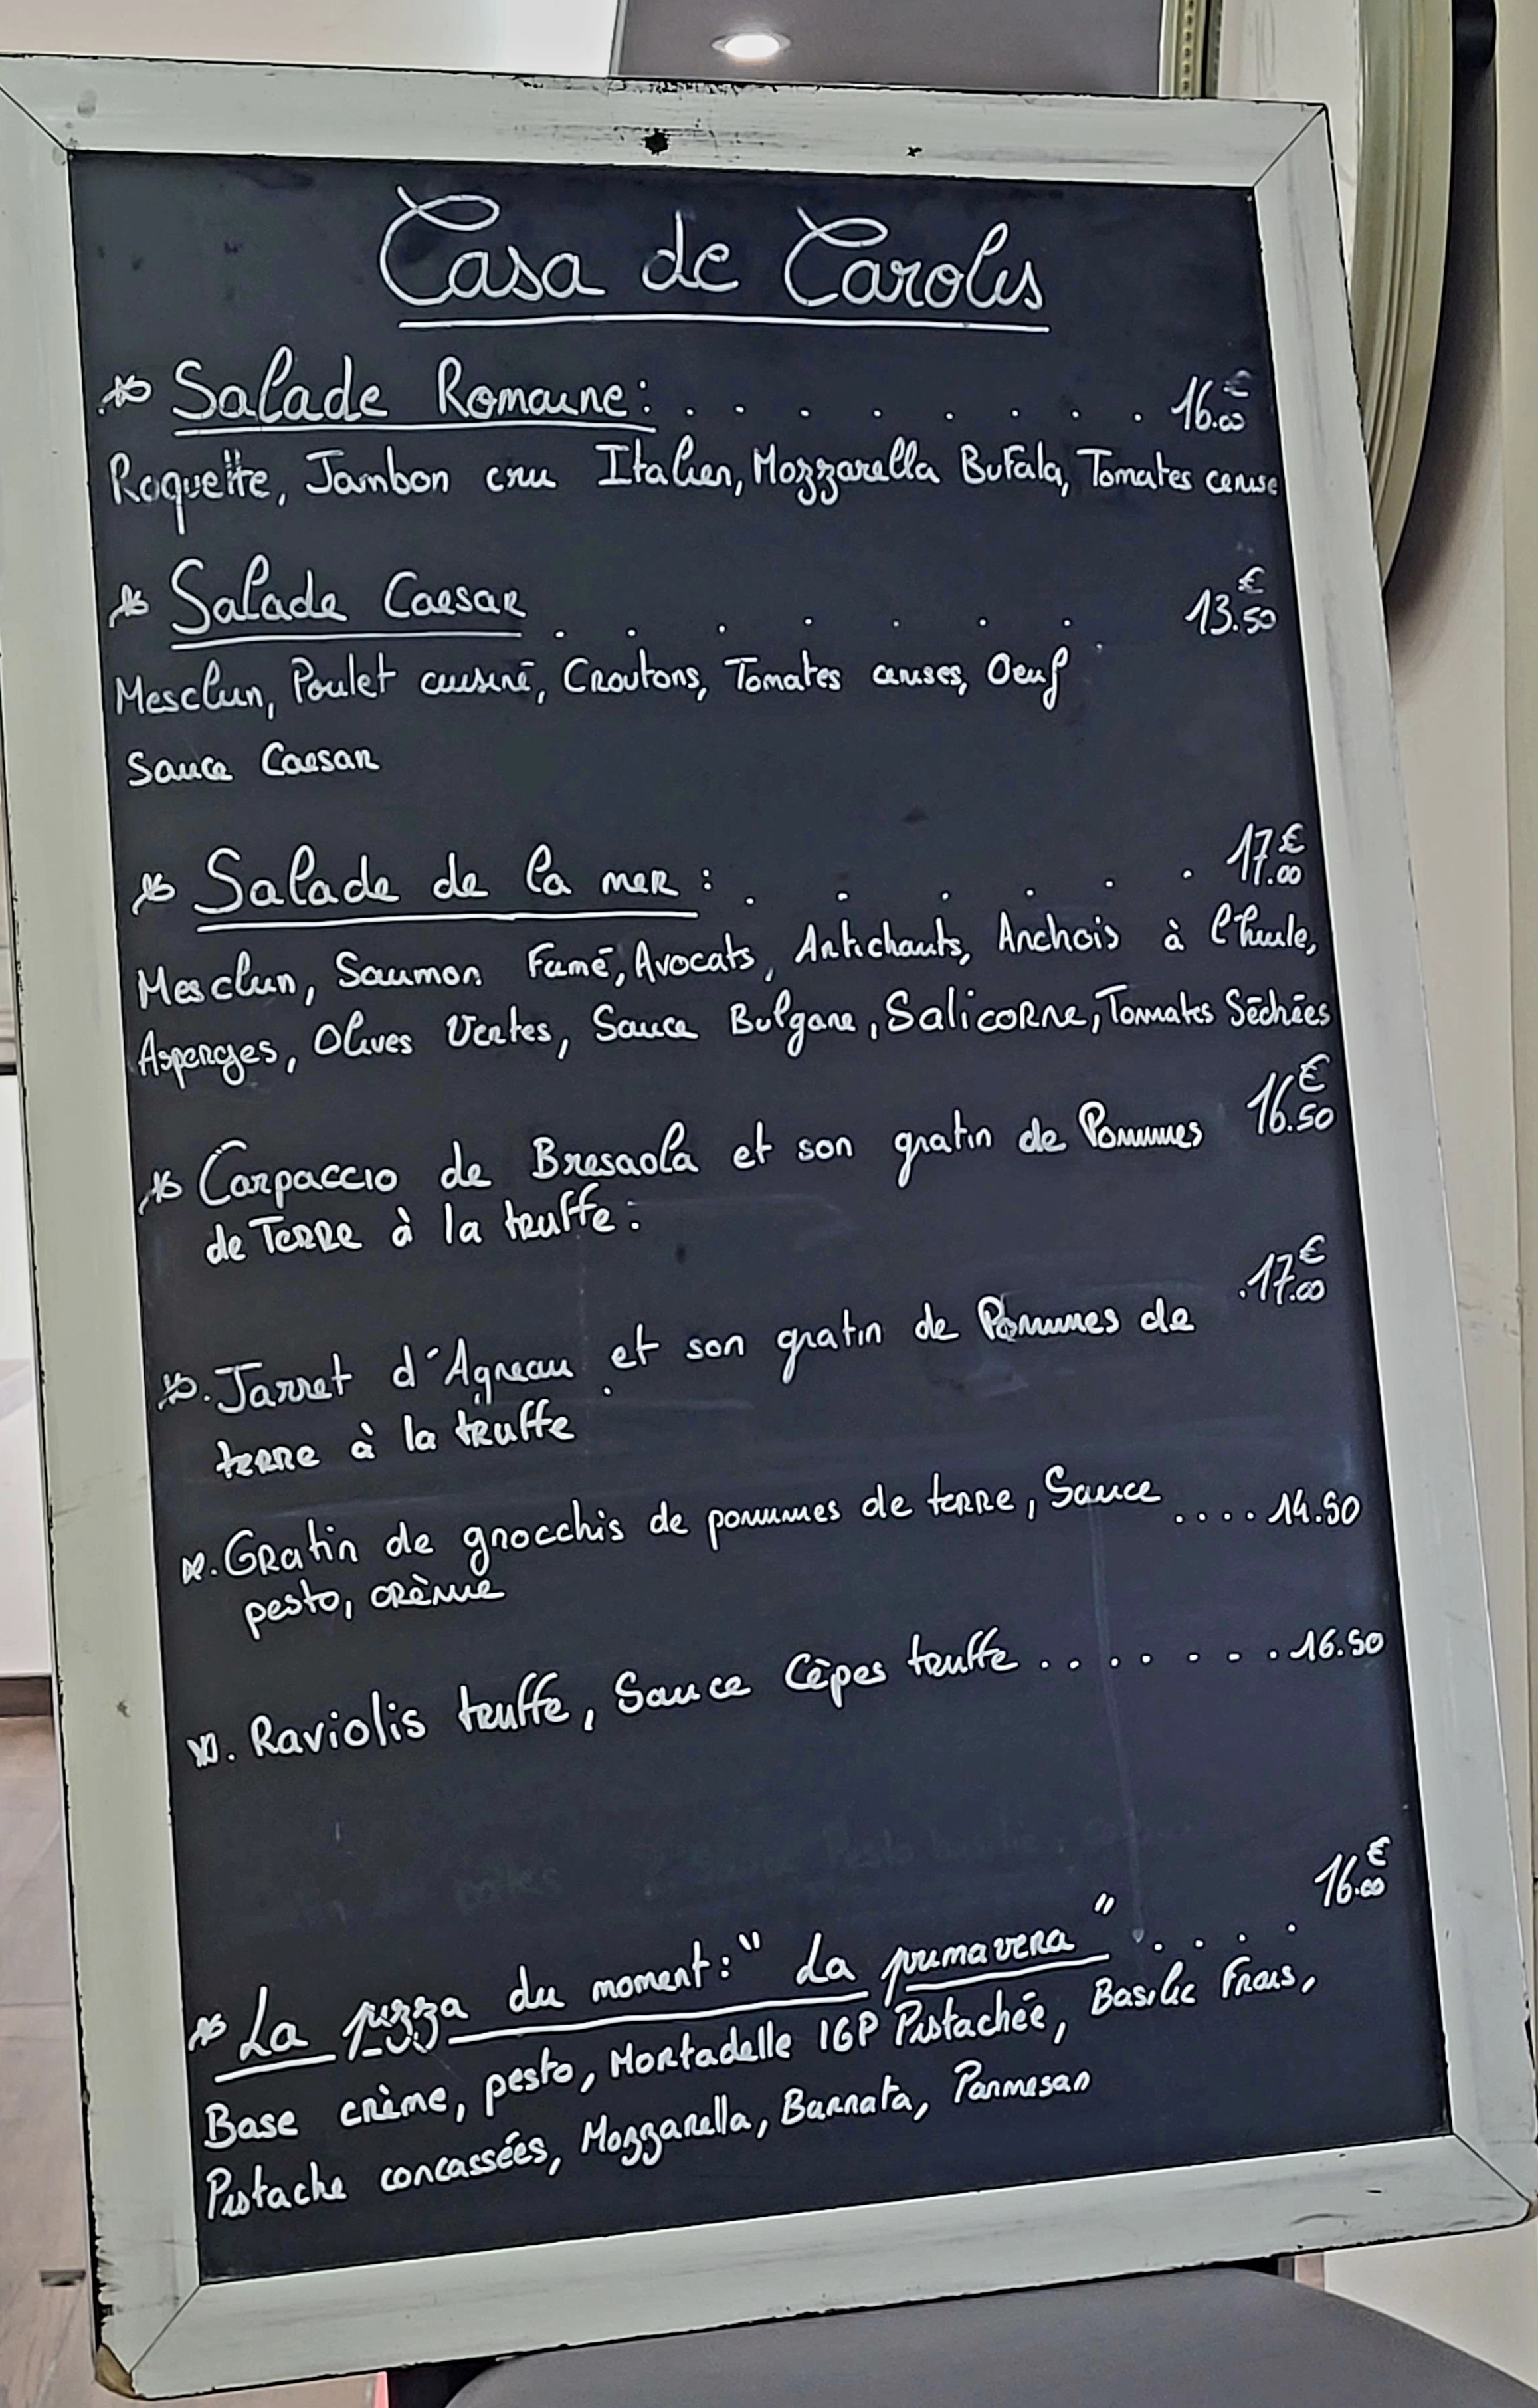 Casa de Carolis
Salade Romaine: . . . . . . . . 16.00€
Roquette, Jambon cru Italien, Mozzarella Bufala, Tomates cerise
Salade Caesar . . . . . . . 13.50€
Mesclun, Poulet cuisiné, Croutons, Tomates cerises, Oeuf
Sauce Caesar
Salade de la mer : . . . . . . 17.00€
Mesclun, Saumon Fumé, Avocats, Artichauts, Anchois à l'huile,
Asperges, Olives Vertes, Sauce Bulgare, Salicorne, Tomates Séchées
Carpaccio de Bresaola et son gratin de Pommes 16.50€
de Terre à la truffe :
Jarret d'Agneau et son gratin de Pommes de 17.00€
terre à la truffe
Gratin de gnocchis de pommes de terre, Sauce .... 14.50
pesto, crème
Raviolis truffe, Sauce Cèpes truffe . . . . . . . . 16.50
La pizza du moment : " La primavera " . . . . 16.00€
Base crème, pesto, Mortadelle IGP Pistachée, Basilic Frais,
Pistache concassées, Mozzarella, Burrata, Parmesan